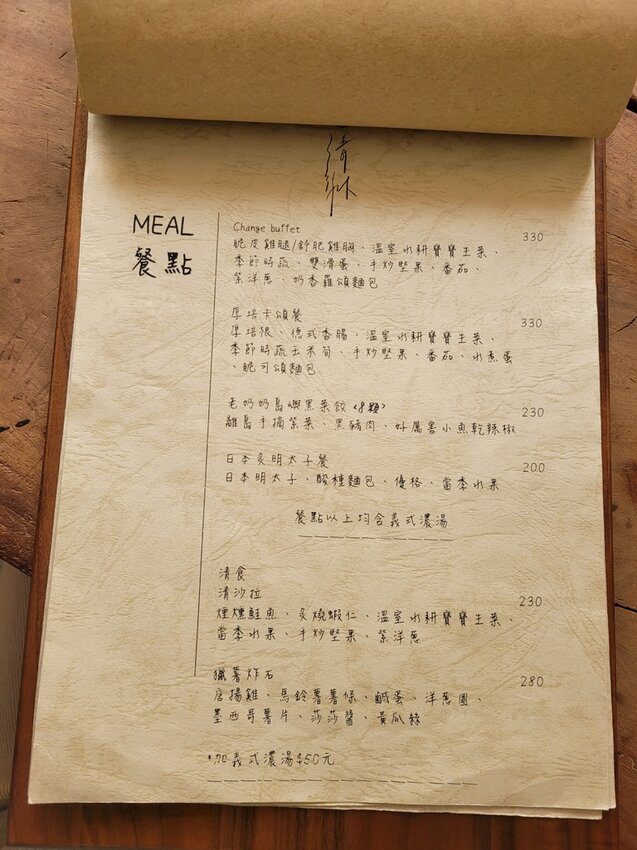 清
MEAL
餐點
Change buffet
脆皮雞腿/舒肥雞胸、溫室水耕寶寶生菜、 330
季節時蔬、雙滑蛋、手炒堅果、番茄、
紫洋蔥、奶香羅頌麵包
厚培卡頌餐
厚培根、德式香腸、溫室水耕寶寶生菜、 330
季節時蔬玉米筍、手炒堅果、番茄、水煮蛋
、脆可頌麵包
老奶奶島嶼黑菜餃(8顆)
離島手摘紫菜、黑豬肉、好厲害小魚乾辣椒 230
日本炙明太子餐
日本明太子、酸種麵包、優格、當季水果 200
餐點以上均含義式濃湯
清食
清沙拉
煙燻鮭魚、炙燒蝦仁、溫室水耕寶寶生菜、 230
當季水果、手炒堅果、紫洋蔥
獵薯炸石
唐揚雞、馬鈴薯薯條、鹹蛋、洋蔥圈、 280
墨西哥薯片、莎莎醬、黃瓜絲
*加義式濃湯$50元